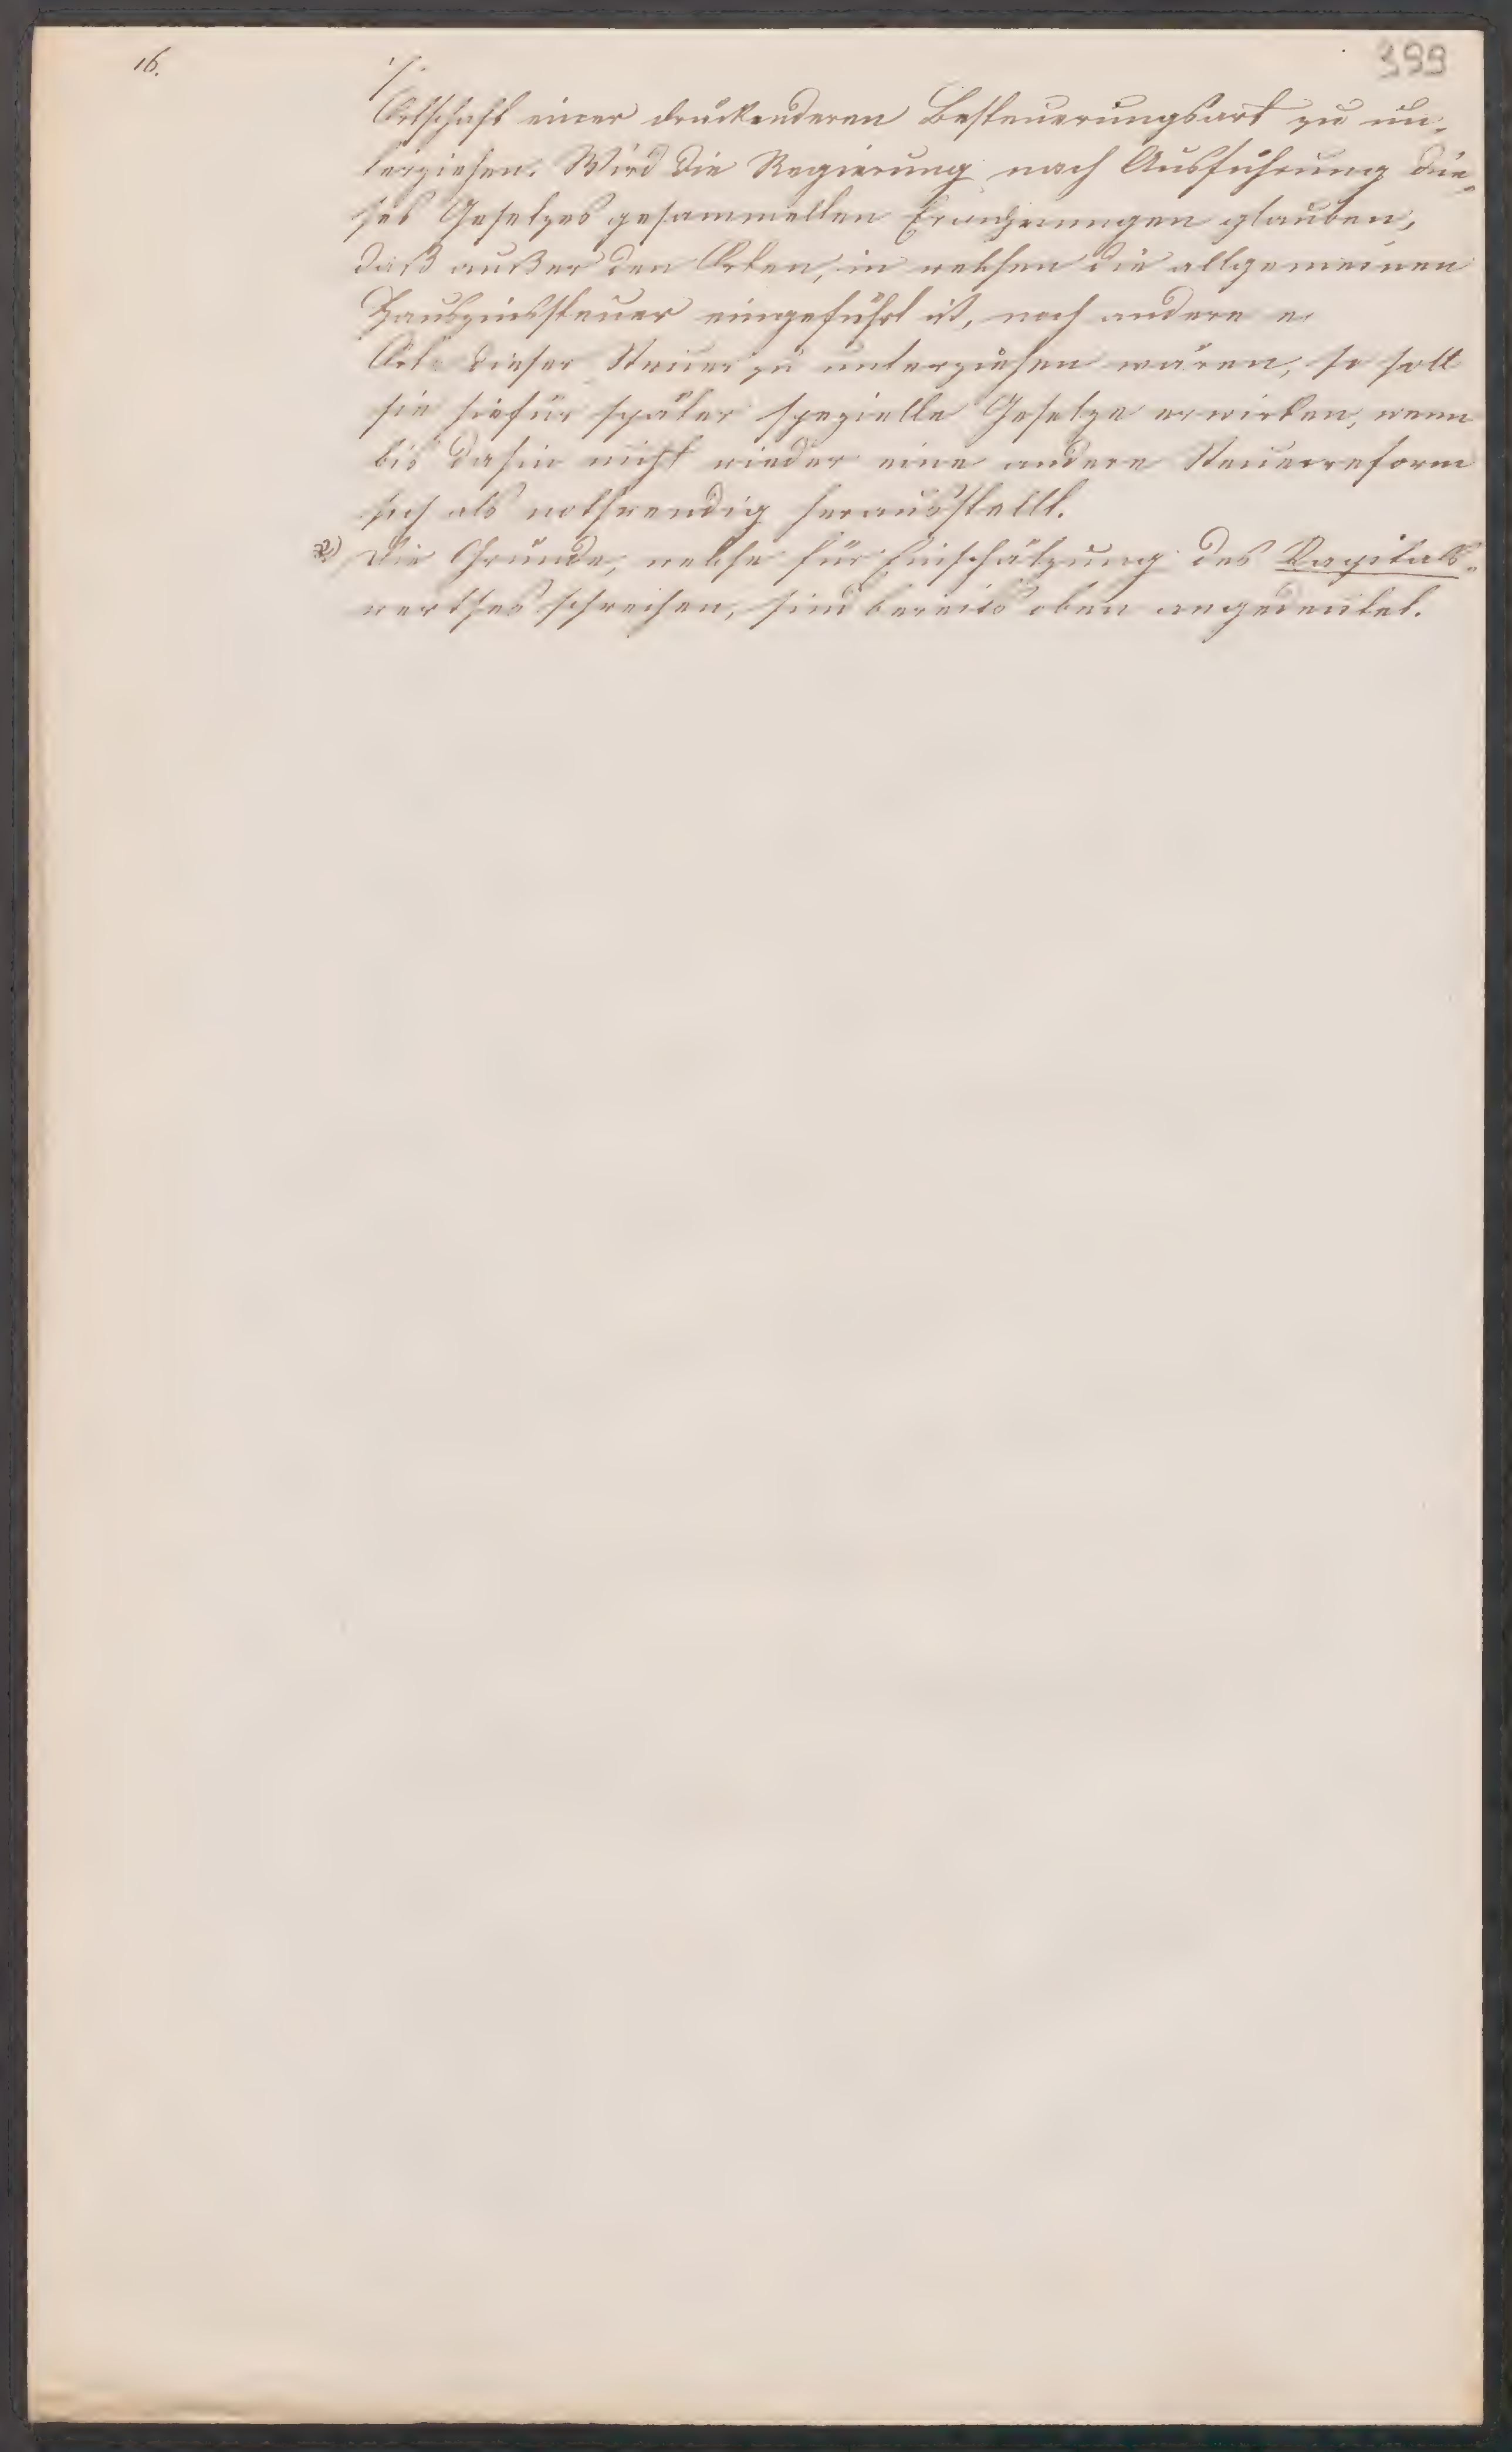 16.
399
./.
Ortschaft einer drückenderen Besteuerungsart zu un-
terziehen. Wird die Regierung nach Ausführung die-
ses Gesetzes gesammelten glauben,
daß außer den Orten, in welchen die allgemeinen
Hauszinssteuer eingeführt ist, noch andere
Orte dieser Steuer zu unterziehen wären, so soll
sie hiefür später spezielle Gesetze erwirken, wenn
bis dahin nicht wieder eine andere Steuerreform
sich als nothwendig herausstellt.
2) Die Gründe, welche für Einschätzung des Kapitals-
werthes sprechen, sind bereits oben angedeutet.